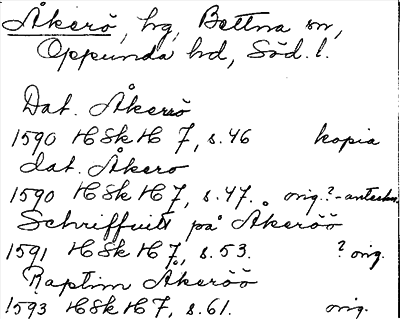 Åkerö, hg, Bettna sn,
Oppunda hd, Söd. l.
Dat. Åkerö
1590 HSkH 7, s.46 kopia
dat. Åkero
1590 HSkH 7, s.47. orig.?-anteckn.
Schriffuitt på Åkeröö
1591 HSkH 7, s.53. ? orig.
Raptim Åkeröö
1593 HSkH 7, s.61. orig.